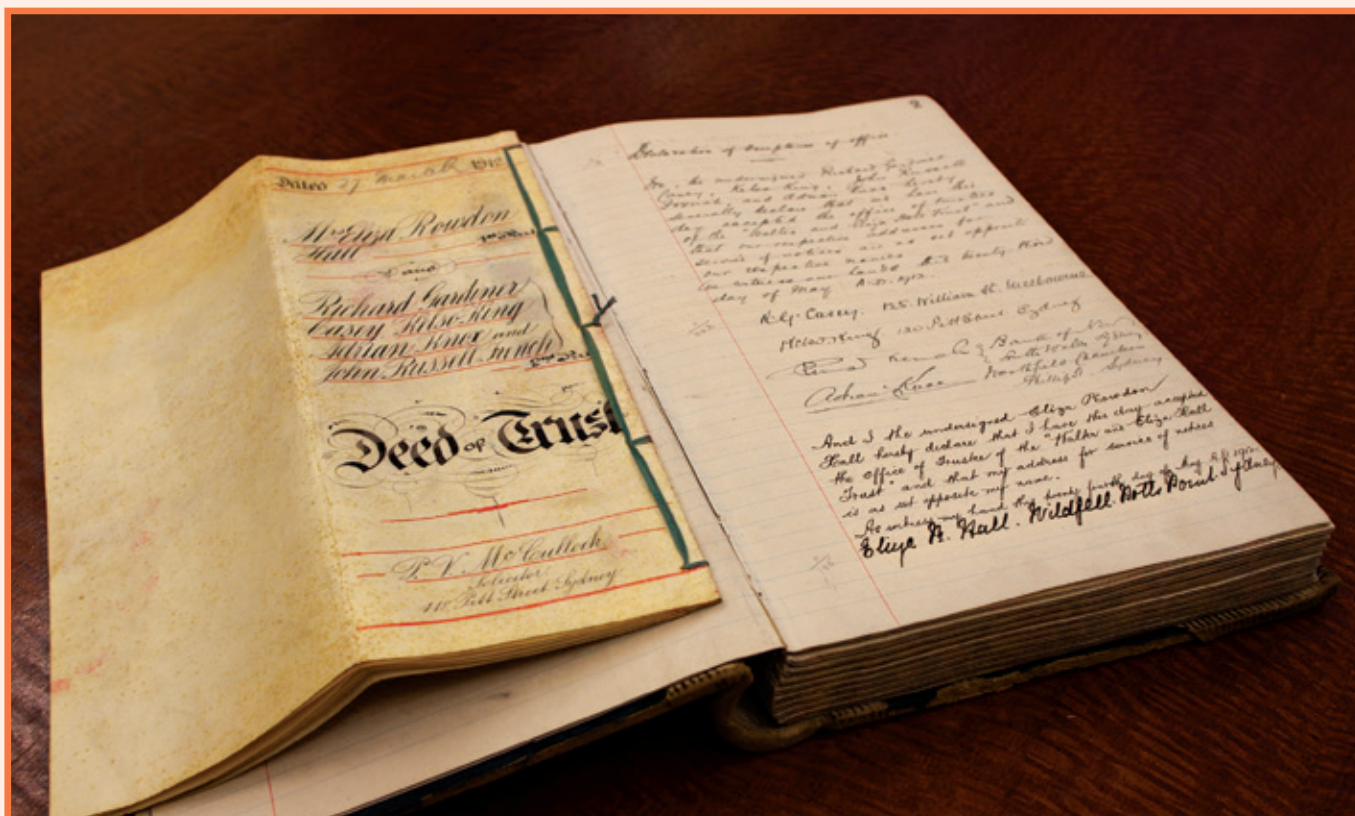 Dated 27 March 1912
Mrs Eliza Rowdon
Hall
1st Part
and
Richard Gardiner
Casey Kelso King
Adrian Knox and
John Russell French
2nd Part
Deed of Trust
P. V. McCulloch
Solicitor
Pitt Street Sydney
2
Declaration of acceptance of office
We, the undersigned Richard Gardiner
Casey, Kelso King, John Russell
French, and Adrian Knox hereby
severally declare that we have this
day accepted the office of trustees
of the "Walter and Eliza Hall Trust" and
that our respective addresses for
service of notices are as set opposite
our respective names.
In witness our hands this twenty third
day of May A.D. 1912.
R. G. Casey. 125 William St. Melbourne
Kelso King 120 Pitt Street Sydney
French Bank of New
South Wales Sydney
Adrian Knox Northfield Chambers
Phillip St Sydney
And I the undersigned Eliza Rowdon
Hall hereby declare that I have this day accepted
the office of Trustee of the "Walter and Eliza Hall
Trust" and that my address for service of notices
is as set opposite my name.
As witness my hand this twenty fourth day of May A.D. 1912.
Eliza R. Hall. Wildfell. Potts Point. Sydney.